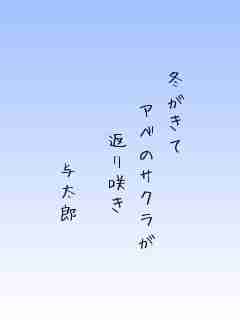 冬がきて
アベのサクラが
返り咲き
与太郎